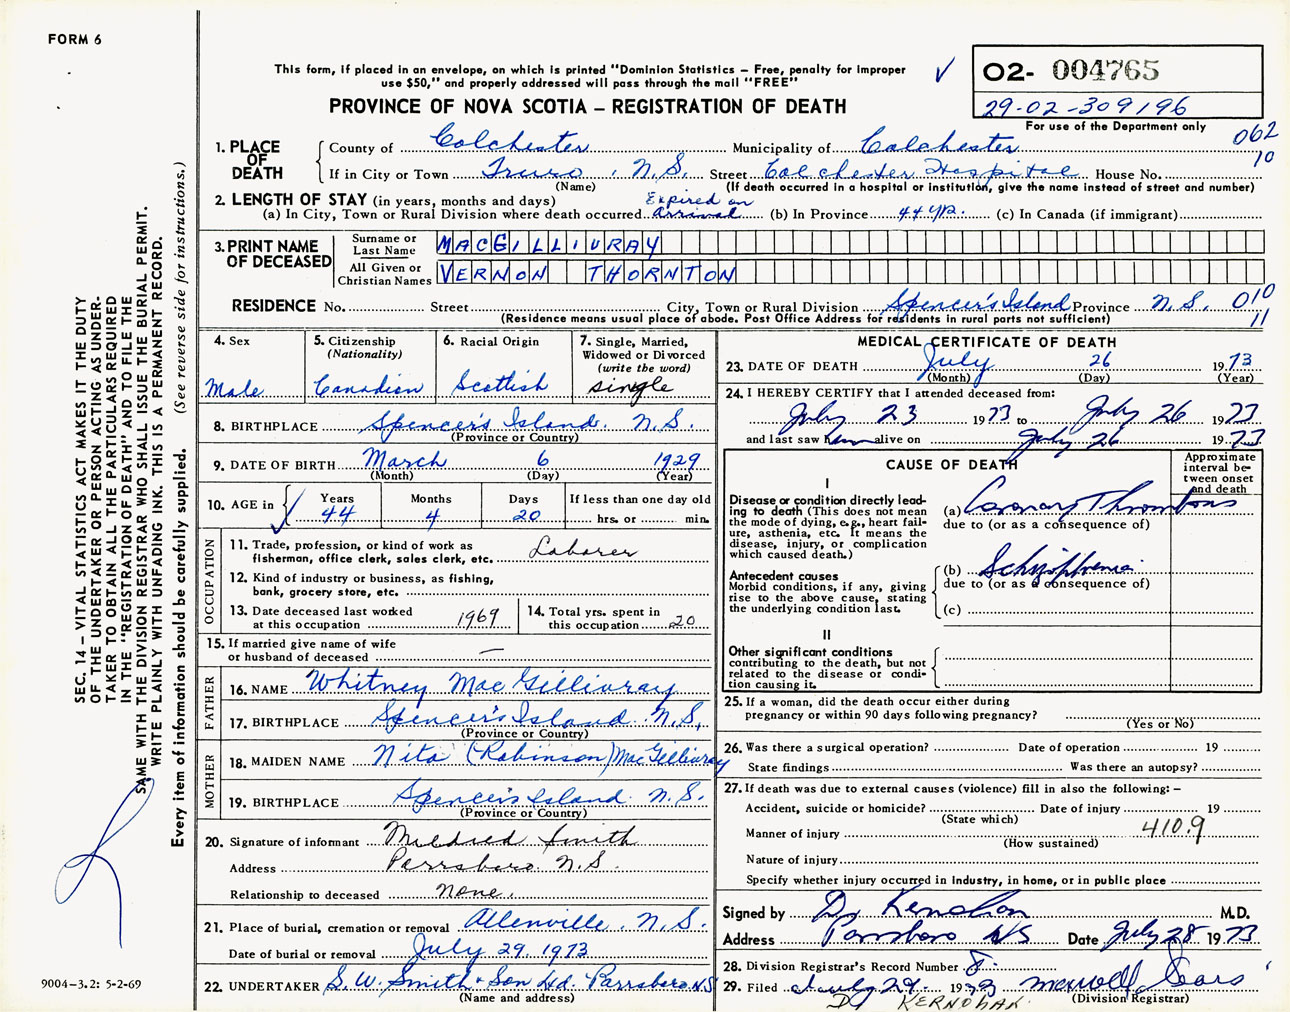 FORM 6
This form, if placed in an envelope, on which is printed "Dominion Statistics – Free, penalty for improper
use $50," and properly addressed will pass through the mail "FREE"
PROVINCE OF NOVA SCOTIA – REGISTRATION OF DEATH
02- 004765
29-02-309196
For use of the Department only
062
10
1. PLACE OF DEATH
County of Colchester Municipality of Colchester
If in City or Town Truro, N.S. Street Colchester Hospital House No.
(Name) (If death occurred in a hospital or institution, give the name instead of street and number)
2. LENGTH OF STAY (in years, months and days)
(a) In City, Town or Rural Division where death occurred Expired on arrival (b) In Province 44 yr. (c) In Canada (if immigrant)
3. PRINT NAME OF DECEASED
Surname or Last Name MACGILLIVRAY
All Given or Christian Names VERNON THORNTON
RESIDENCE No. Street City, Town or Rural Division Spencer's Island Province N.S. 010
11
(Residence means usual place of abode. Post Office Address for residents in rural parts not sufficient)
4. Sex
Male
5. Citizenship
(Nationality)
Canadian
6. Racial Origin
Scottish
7. Single, Married,
Widowed or Divorced
(write the word)
single
8. BIRTHPLACE Spencer's Island. N.S.
(Province or Country)
9. DATE OF BIRTH March 6 1929
(Month) (Day) (Year)
10. AGE in
Years Months Days If less than one day old
44 4 20 hrs. or min.
OCCUPATION
11. Trade, profession, or kind of work as
fisherman, office clerk, sales clerk, etc. Laborer
12. Kind of industry or business, as fishing,
bank, grocery store, etc.
13. Date deceased last worked
at this occupation 1969
14. Total yrs. spent in
this occupation 20
15. If married give name of wife
or husband of deceased —
FATHER
16. NAME Whitney MacGillivray
17. BIRTHPLACE Spencer's Island N.S.
(Province or Country)
MOTHER
18. MAIDEN NAME Nita (Robinson) MacGillivray
19. BIRTHPLACE Spencer's Island. N.S.
(Province or Country)
20. Signature of informant Mildred Smith
Address Parrsboro. N.S.
Relationship to deceased None.
21. Place of burial, cremation or removal Allenville, N.S.
Date of burial or removal July 29. 1973
22. UNDERTAKER S. W. Smith + Son Ltd. Parrsboro N.S
(Name and address)
MEDICAL CERTIFICATE OF DEATH
23. DATE OF DEATH July 26 1973
(Month) (Day) (Year)
24. I HEREBY CERTIFY that I attended deceased from:
July 23 1973 to July 26 1973
and last saw him alive on July 26 1973
CAUSE OF DEATH
Approximate
interval be-
tween onset
and death
I
Disease or condition directly lead-
ing to death (This does not mean
the mode of dying, e.g., heart fail-
ure, asthenia, etc. It means the
disease, injury, or complication
which caused death.)
(a) Coronary Thrombosis
due to (or as a consequence of)
Antecedent causes
Morbid conditions, if any, giving
rise to the above cause, stating
the underlying condition last.
(b) Schizophrenia
due to (or as a consequence of)
(c)
II
Other significant conditions
contributing to the death, but not
related to the disease or condi-
tion causing it.
25. If a woman, did the death occur either during
pregnancy or within 90 days following pregnancy?
(Yes or No)
26. Was there a surgical operation? Date of operation 19
State findings Was there an autopsy?
27. If death was due to external causes (violence) fill in also the following: –
Accident, suicide or homicide? Date of injury 19
(State which)
Manner of injury 410.9
(How sustained)
Nature of injury
Specify whether injury occurred in industry, in home, or in public place
Signed by Dr Kernohan M.D.
Address Parrsboro NS Date July 28 1973
28. Division Registrar's Record Number 8.
29. Filed July 29. 1973
(Division Registrar)
Dr KERNOHAN
SEC. 14 – VITAL STATISTICS ACT MAKES IT THE DUTY
OF THE UNDERTAKER OR PERSON ACTING AS UNDER-
TAKER TO OBTAIN ALL THE PARTICULARS REQUIRED
IN THE "REGISTRATION OF DEATH" AND TO FILE THE
SAME WITH THE DIVISION REGISTRAR WHO SHALL ISSUE THE BURIAL PERMIT.
WRITE PLAINLY WITH UNFADING INK. THIS IS A PERMANENT RECORD.
Every item of information should be carefully supplied. (See reverse side for instructions.)
9004-3.2: 5-2-69